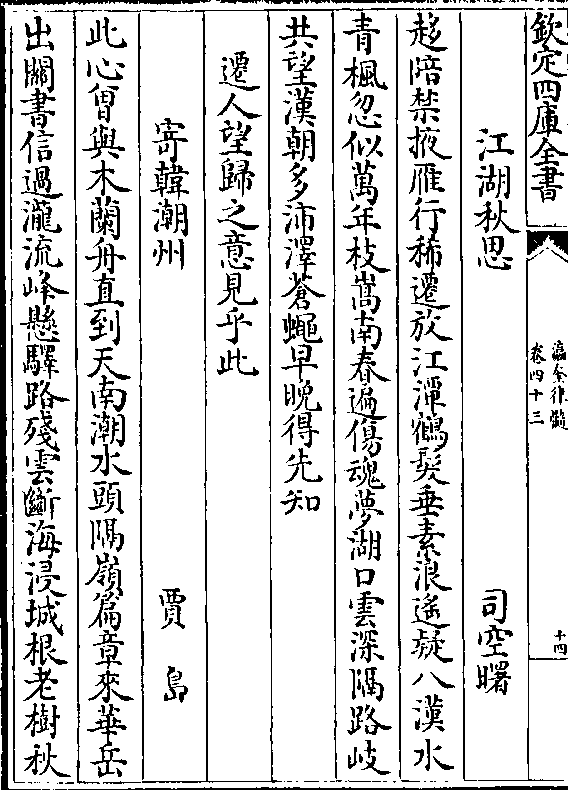 欽定四庫全書
瀛奎律髓
卷四十三
十四
江湖秋思 司空曙
趍陪禁掖雁行稀遷放江潭鶴髮垂素浪遙疑八漢水
青楓忽似萬年枝嵩南春遍傷魂夢湖口雲深隔路岐
共望漢朝多沛澤蒼蠅早晚得先知
遷人望歸之意見乎此
寄韓潮州 賈島
此心曾與木蘭舟直到天南潮水頭隔嶺篇章來華岳
出關書信過瀧流峰懸驛路殘雲斷海浸城根老樹秋